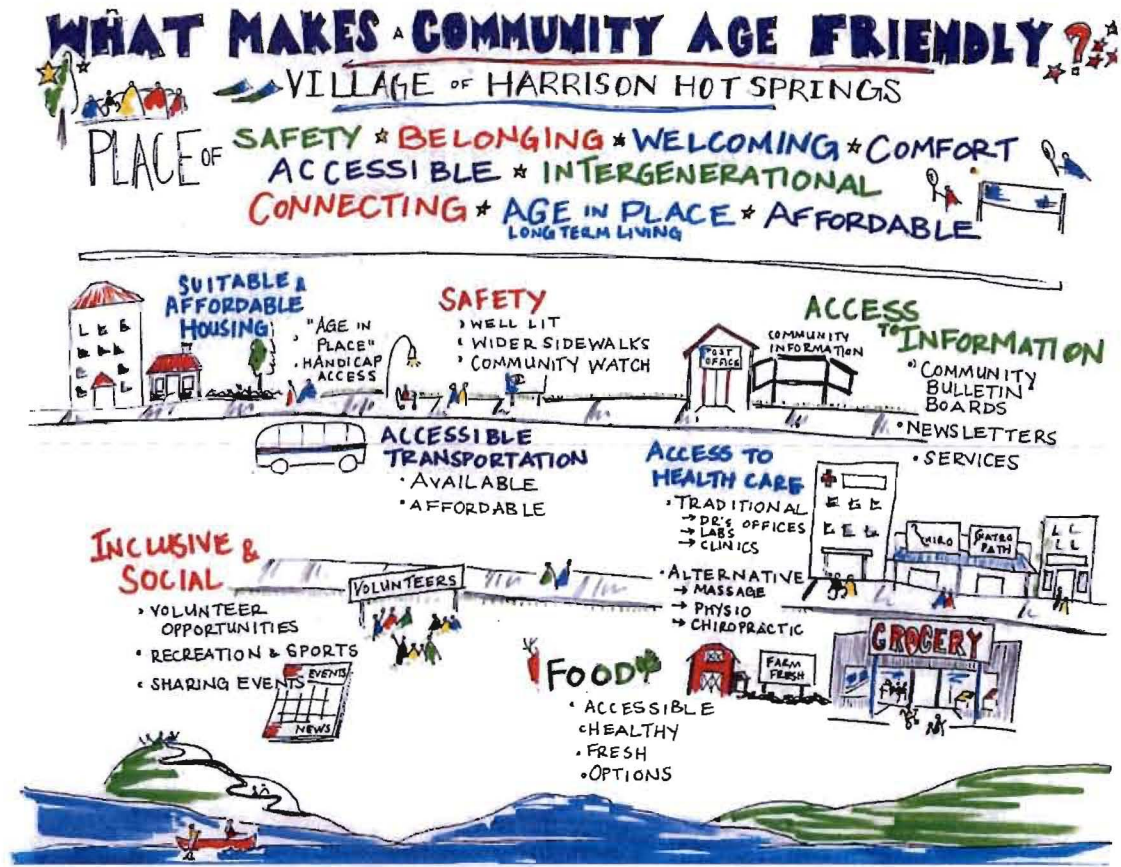 WHAT MAKES A COMMUNITY AGE FRIENDLY?
VILLAGE OF HARRISON HOT SPRINGS
PLACE OF
SAFETY * BELONGING * WELCOMING * COMFORT
ACCESSIBLE * INTERGENERATIONAL
CONNECTING * AGE IN PLACE * AFFORDABLE
LONG TERM LIVING
SUITABLE &
AFFORDABLE
HOUSING
"AGE IN
PLACE"
HANDICAP
ACCESS
SAFETY
WELL LIT
WIDER SIDEWALKS
COMMUNITY WATCH
POST
OFFICE
COMMUNITY
INFORMATION
ACCESS
TO INFORMATION
COMMUNITY
BULLETIN
BOARDS
NEWSLETTERS
SERVICES
ACCESSIBLE
TRANSPORTATION
AVAILABLE
AFFORDABLE
ACCESS TO
HEALTH CARE
TRADITIONAL
→ DR'S OFFICES
→ LABS
→ CLINICS
ALTERNATIVE
→ MASSAGE
→ PHYSIO
→ CHIROPRACTIC
CHIRO
NATRO
PATH
INCLUSIVE &
SOCIAL
VOLUNTEER
OPPORTUNITIES
RECREATION & SPORTS
SHARING EVENTS
VOLUNTEERS
EVENTS
NEWS
FOOD
ACCESSIBLE
HEALTHY
FRESH
OPTIONS
FARM
FRESH
GROCERY